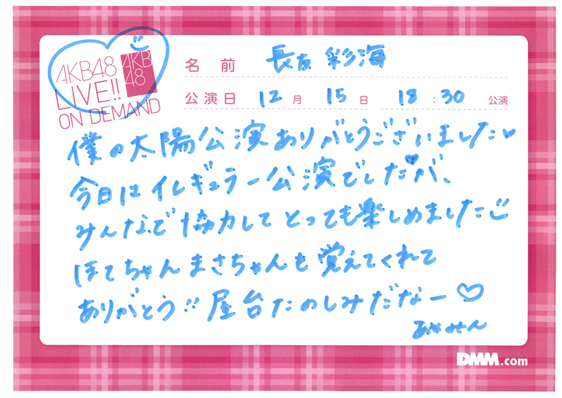 AKB48
LIVE!!
ON DEMAND
AKB
48
名 前 長友 彩海
公演日 12 月 15 日 18 : 30 公演
僕の太陽公演ありがとうございました♡
今日はイレギュラー公演でしたが、
みんなで協力してとっても楽しめました
ほてちゃんまさちゃんも覚えてくれて
ありがとう!! 屋台たのしみだなー♡
あやみん
DMM.com